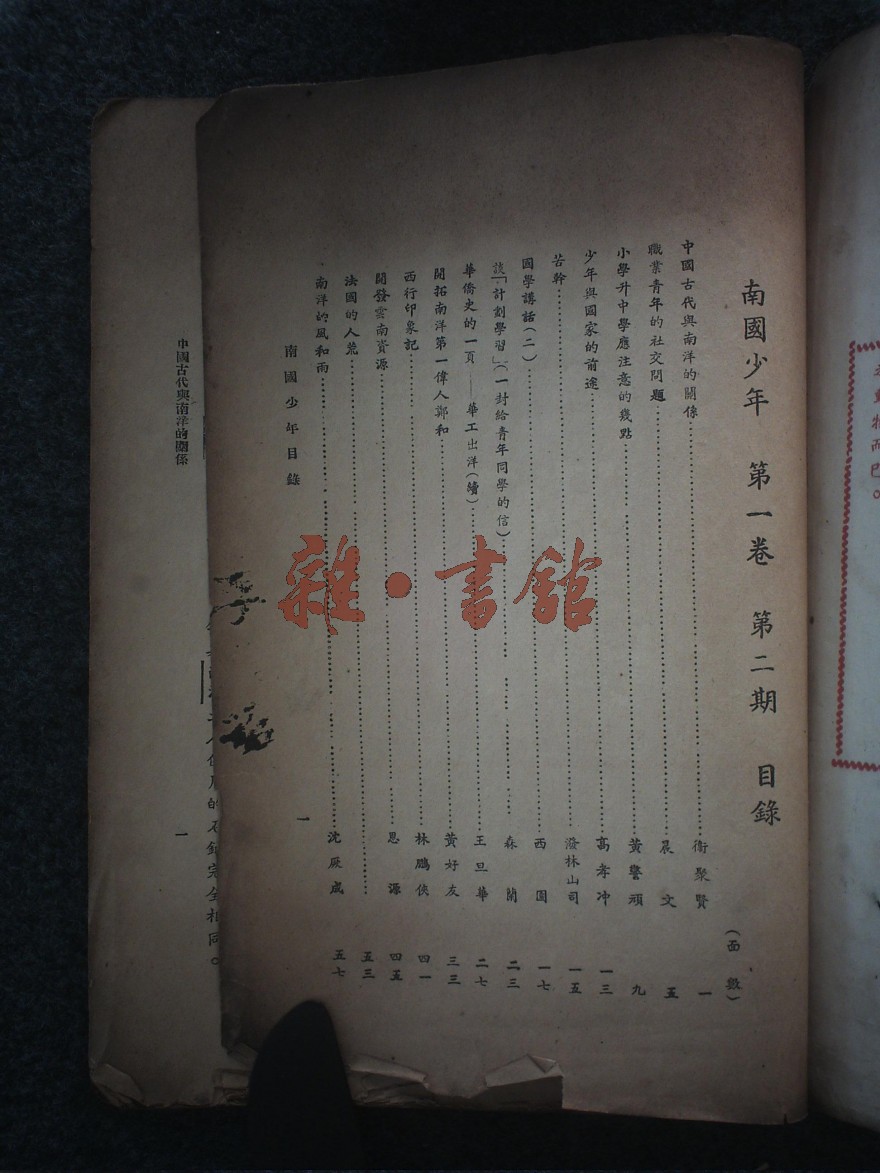 南國少年 第一卷 第二期 目錄
(面數)
中國古代與南洋的關係 衞聚賢 一
職業青年的社交問題 晨文 五
小學升中學應注意的幾點 黃警頑 九
少年與國家的前途 高孝冲 一三
苦幹 潑林山司 一五
國學講話(二) 西園 一七
談「計劃學習」(一封給青年同學的信) 森蘭 二三
華僑史的一頁——華工出洋(續) 王旦華 二七
開拓南洋第一偉人鄭和 黃好友 三三
西行印象記 林鵬俠 四一
開發雲南資源 思源 四五
法國的人荒 五三
南洋的風和雨 沈厥成 五七
南國少年目錄
一
雜·書館
的石錛完全相同。
中國古代與南洋的關係
一
而已。